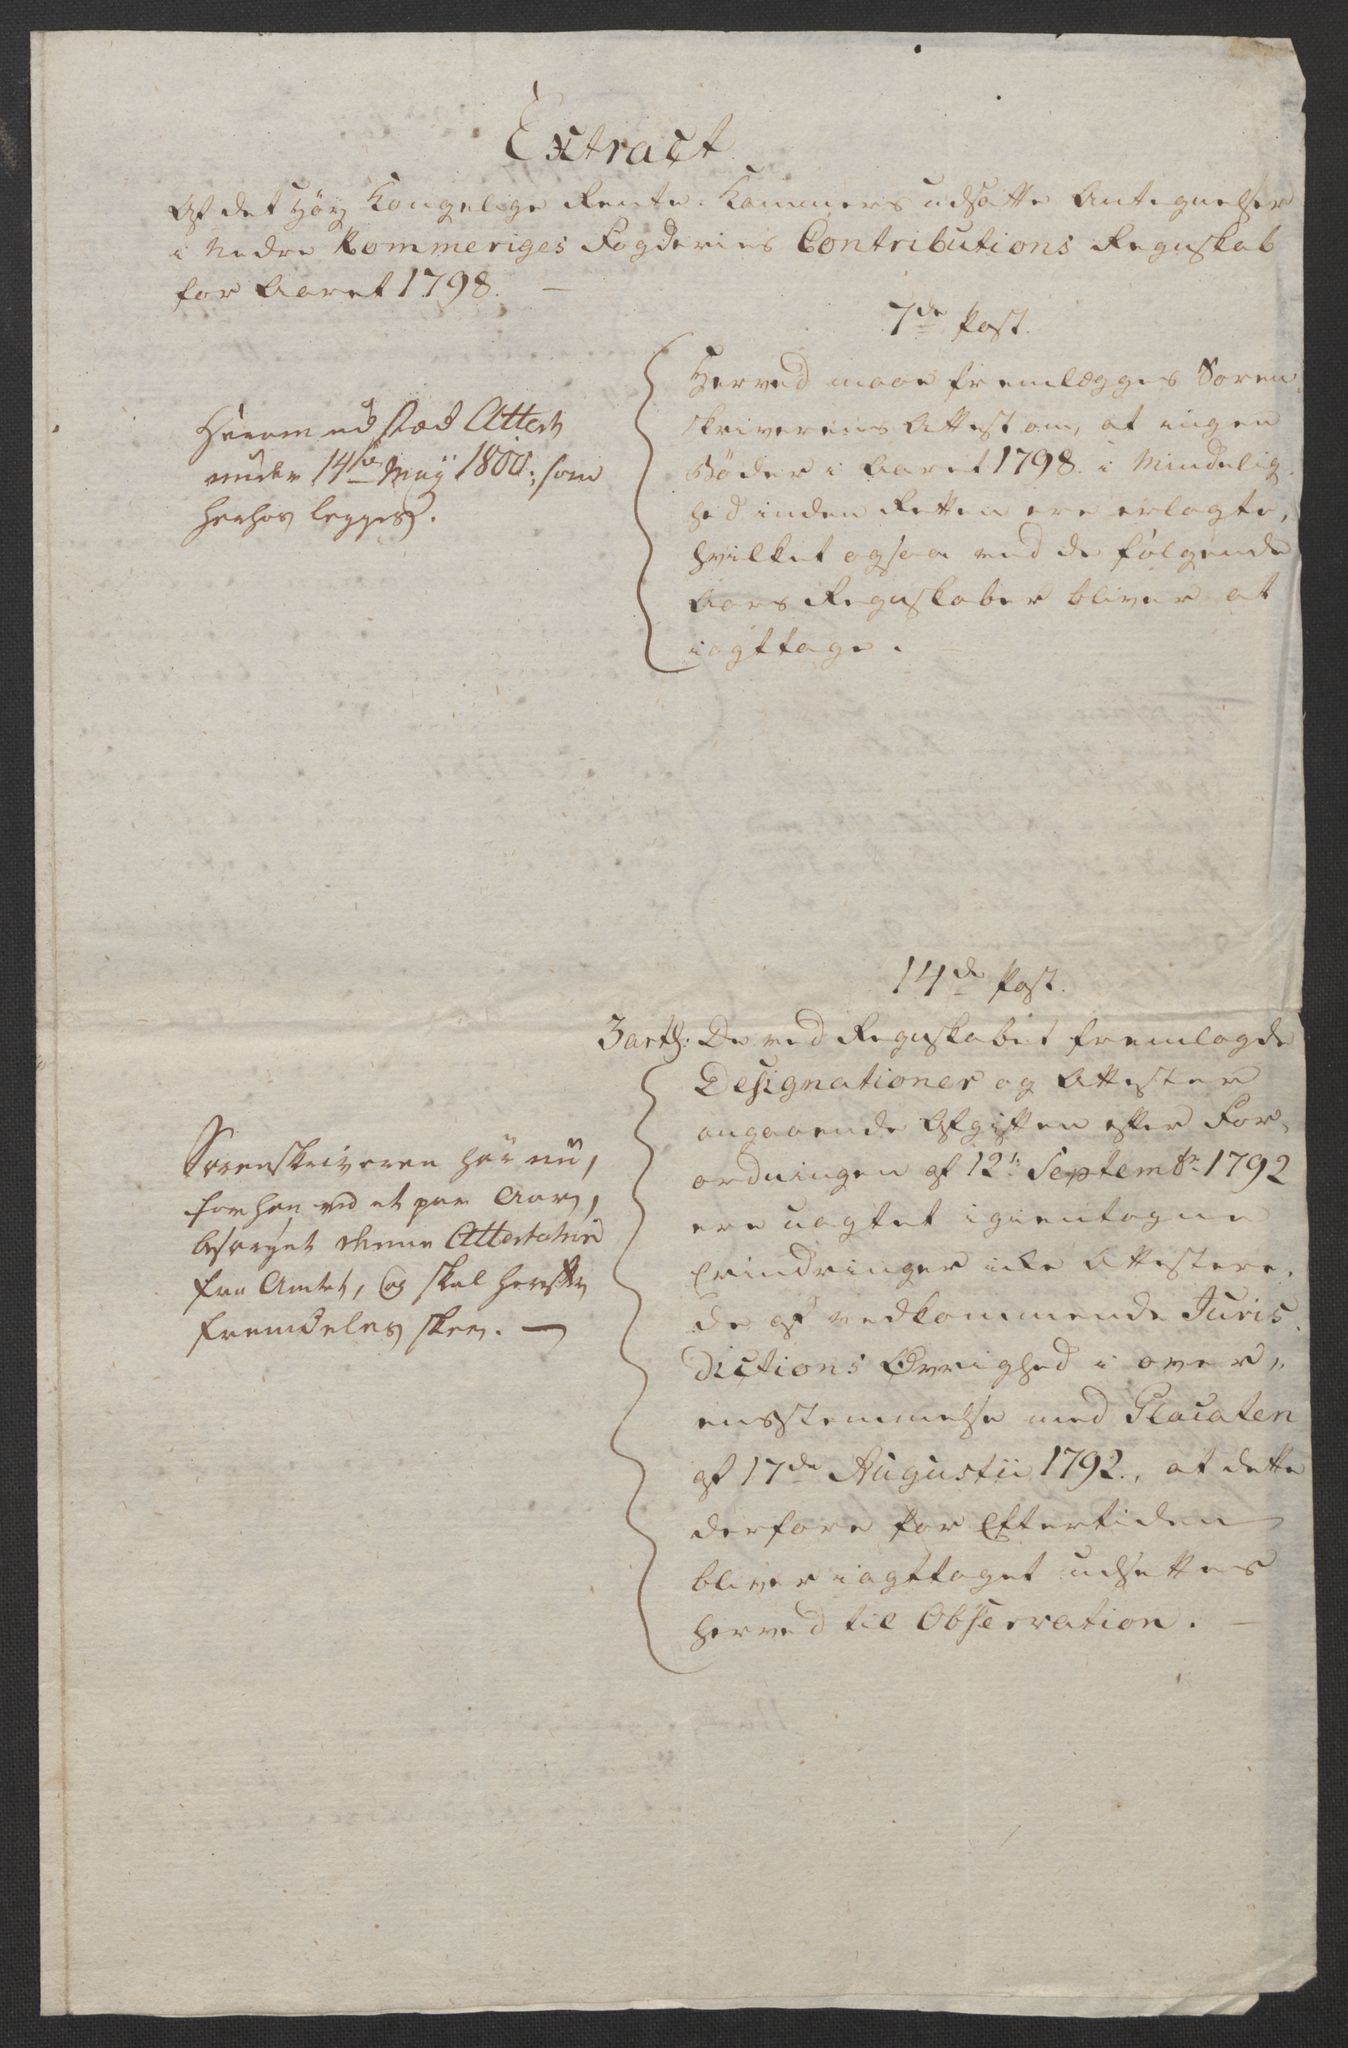 Extract
Af det Höy Kongelige Rente-Kammers udsatte Antegnelser
i Nedre Rommeriges Fogderies Contributions Regnskab
for Aaret 1798. —
7de Post.
Herved maae fremlægges Soren-
skriverens Attest om, at ingen
Böder i Aaret 1798 i Mindelig-
hed inden Retten ere erlagte,
hvilket ogsaa ved de følgende
Aars Regnskaber bliver at
iagttage. —
Herom udstæd Attest
under 14de Maÿ 1800, som
herhos legges.
14de Post.
3 art: De ved Regnskabet fremlagde
Designationer og Attester
angaaende Afgiften efter For-
ordningen af 12te Septembr 1792
ere uagtet igientagne
Erindringer icke Attestere-
de af vedkommende Juris-
dictions Øvrighed i over-
ensstemmelse med Placaten
af 17de Augustii 1792., at dette
derfore for Eftertiden
bliver iagttaget udsettes
herved til Observation. —
Sorenskriveren har nu,
for han ved et par Aar,
besørget denne Attestation
fra Amtet, og skal herefter
fremdeles skee. —